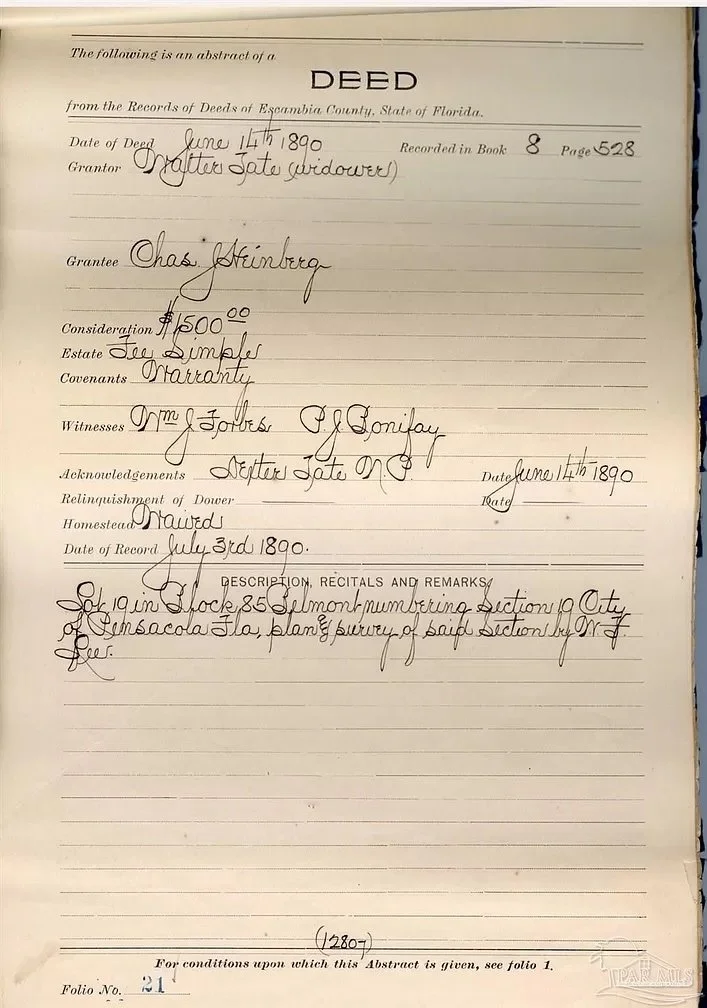 The following is an abstract of a
DEED
from the Records of Deeds of Escambia County, State of Florida.
Date of Deed June 14th 1890 Recorded in Book 8 Page 528
Grantor Walter Tate (widower)
Grantee Chas. J Heinberg
Consideration $1500 00
Estate Fee Simple
Covenants Warranty
Witnesses Wm J Forbes P. J Bonifay
Acknowledgements Dexter Tate N.P. Date June 14th 1890
Relinquishment of Dower Date
Homestead Waived
Date of Record July 3rd 1890.
DESCRIPTION, RECITALS AND REMARKS.
Lot 19 in Block 85 Belmont numbering Section 19 City
of Pensacola Fla, plan & survey of said Section by W F.
Lee.
(1280-)
For conditions upon which this Abstract is given, see folio 1.
Folio No. 21
PAR MLS